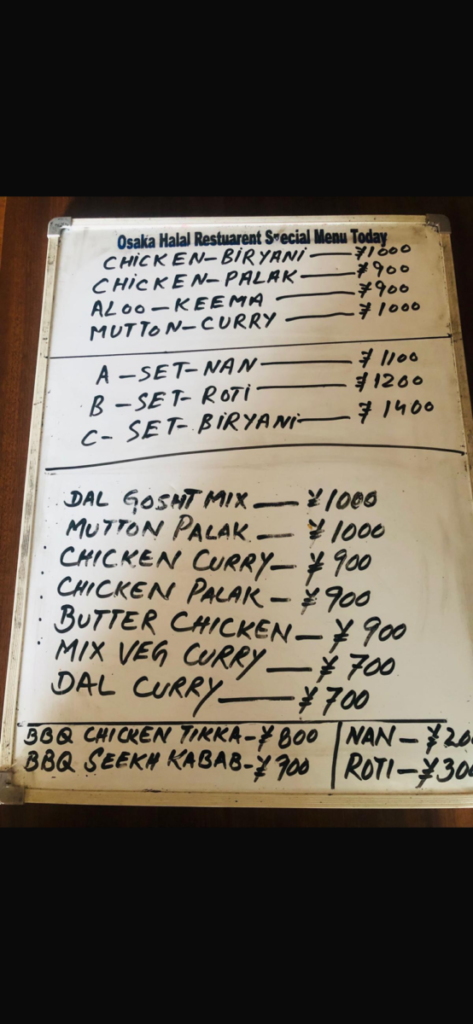 Osaka Halal Restuarent Special Menu Today
CHICKEN-BIRYANI — ¥1000
CHICKEN-PALAK — ¥900
ALOO-KEEMA — ¥900
MUTTON-CURRY — ¥1000
A-SET-NAN — ¥1100
B-SET-ROTI — ¥1200
C-SET-BIRYANI — ¥1400
DAL GOSHT MIX — ¥1000
MUTTON PALAK — ¥1000
CHICKEN CURRY — ¥900
CHICKEN PALAK — ¥900
BUTTER CHICKEN — ¥900
MIX VEG CURRY — ¥700
DAL CURRY — ¥700
BBQ CHICKEN TIKKA-¥800
BBQ SEEKH KABAB-¥700
NAN-¥20
ROTI-¥30